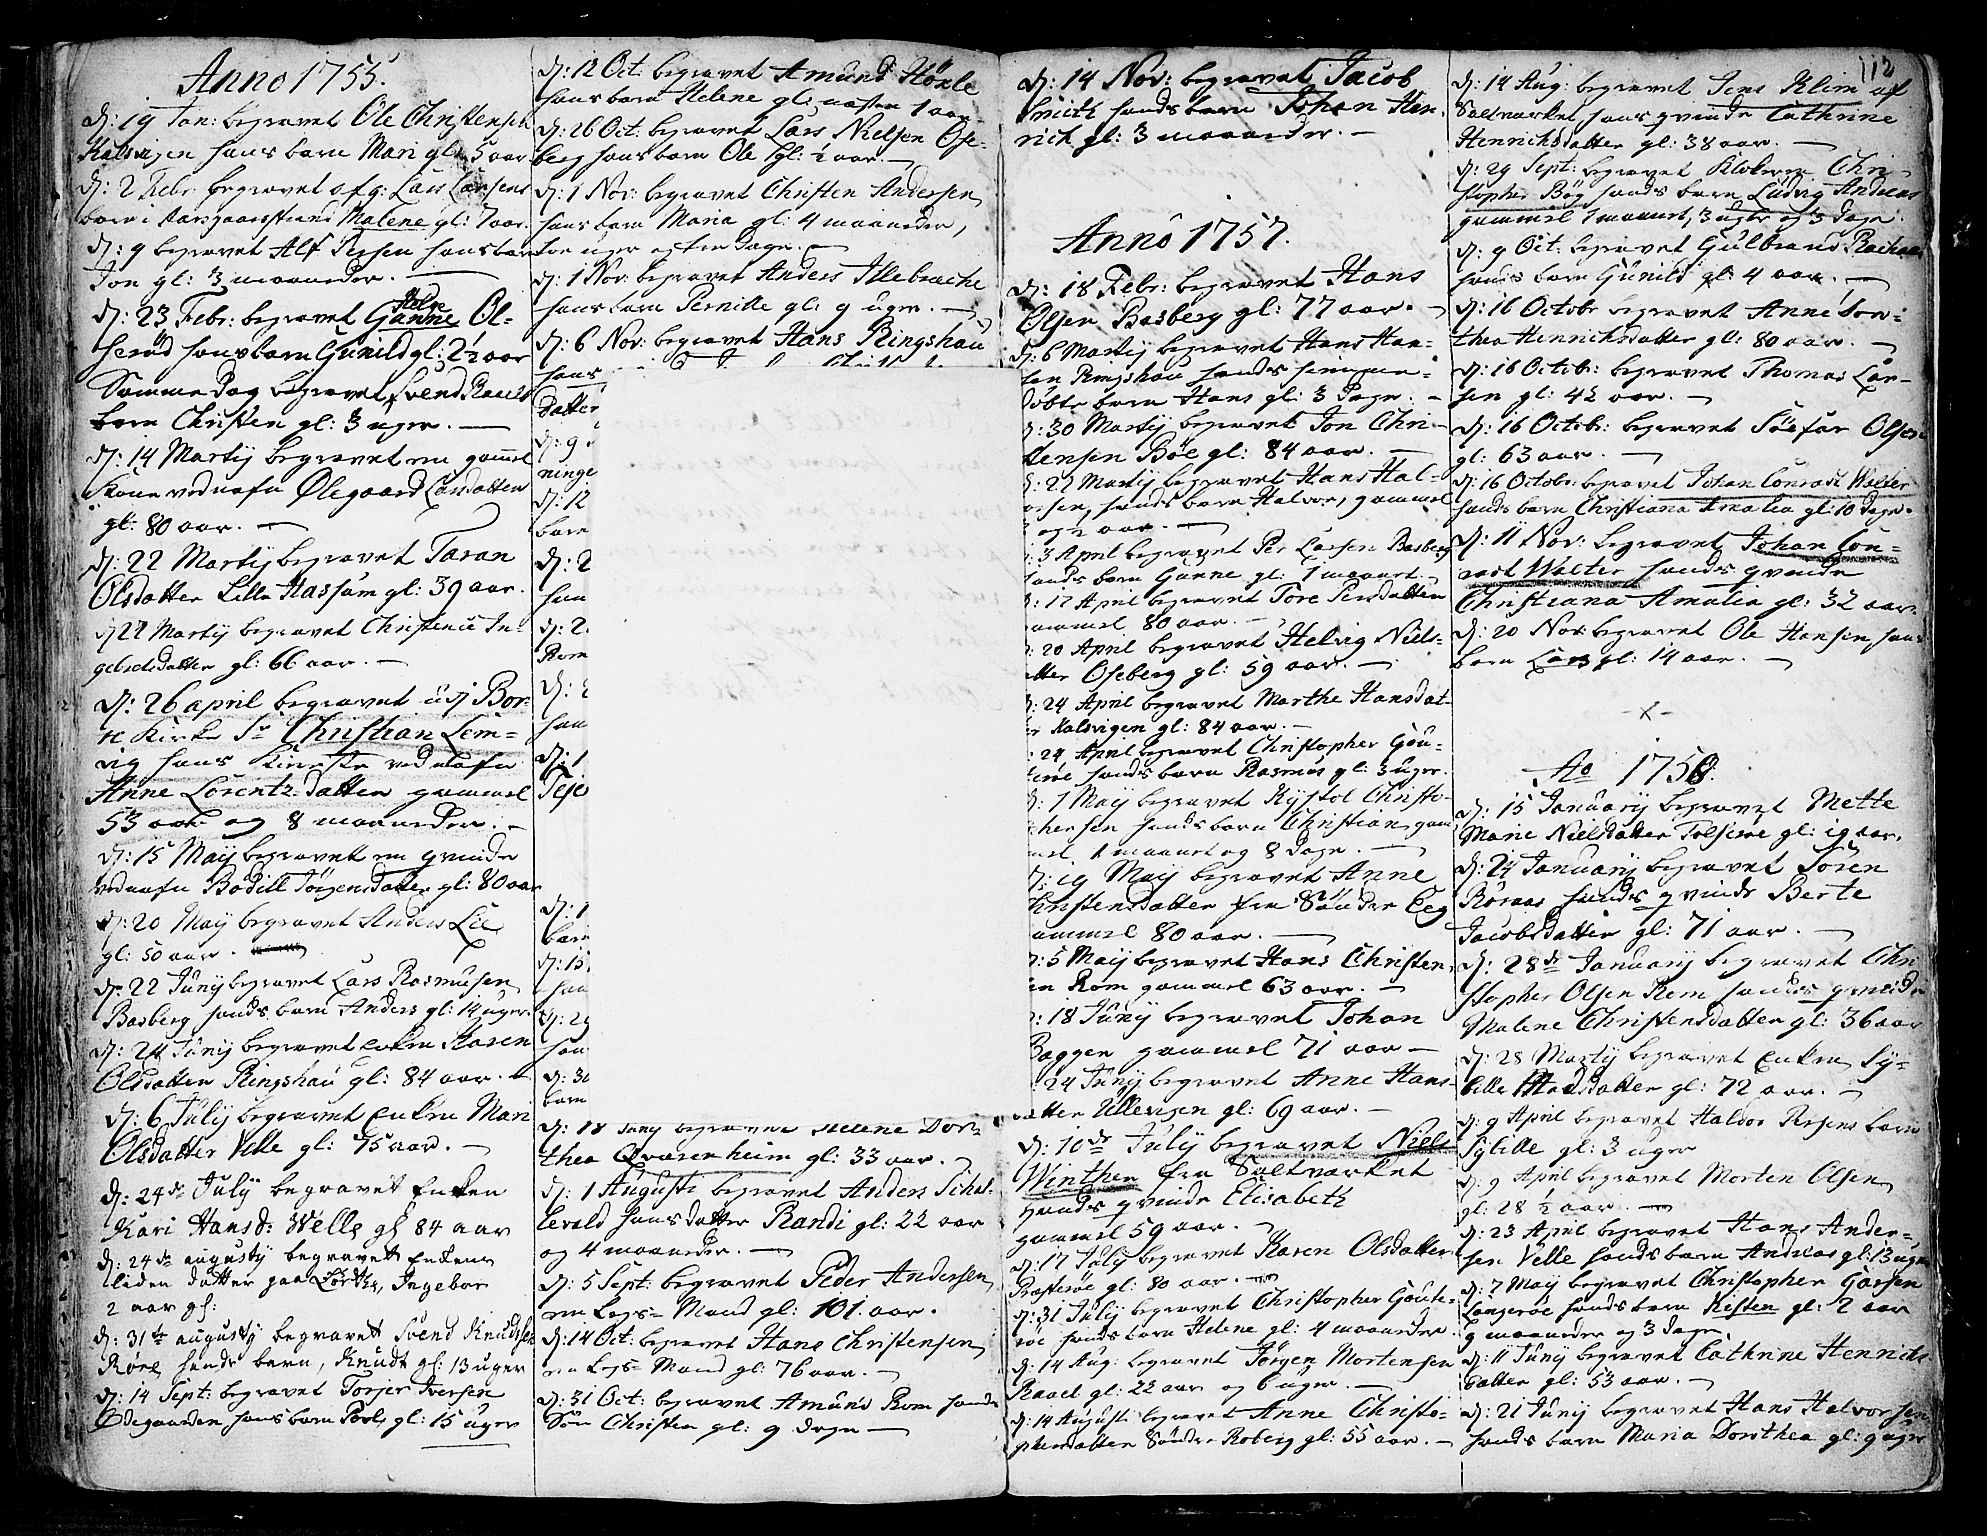 Anno 1755.
D: 19 Jan: begravet Ole Christensen
Kalsvigen hans barn Mari gl: 5 aar
D: 2 Febr: begravet afg: Lars Larsens
barn i Aarsgaarstrand Malene gl: 7 aar.
D: 9 begravet Alf Persen hans barn
Jon gl: 3 maaneder.
D: 23 Febr: begravet Gunne Ol-
serød hans barn Gunild gl: 2½ aar
Samme Dag begravet Svend
barn Christen gl: 3 uger.
D: 14 Martij begravet en gammel
Kone ved nafn Olegaard Larsdatter
gl: 80 aar.
D: 22 Martij begravet Taran
Olsdatter Lille Hassum gl: 39 aar.
D 22 Martij begravet Christence In-
gebretsdatter gl: 66 aar.
D: 26 april begravet udj Bor-
re Kirke Sr Christian Lem-
vig hans Kieriste ved nafn
Anne Lorentz-datter gammel
53 aar og 8 maaneder.
D: 15 Maij begravet en qvinde
ved nafn Bodill Jørgensdatter gl: 80 aar
D: 20 Maij begravet Anders Lie
gl: 50 aar.
D: 22 Junij begravet Lars Rasmusen
Basberg hands barn Anders gl: 14 uger.
D: 24 Junij begravet enken Karen
Olsdatter Ringshau gl: 84 aar.
D: 6 Julij begravet Enken Mari
Olsdatter Velle gl: 75 aar.
D: 24de July begravet Enken
Kari Hansd: Welle gl 84 aar
D: 24de augusty begravett Enkens
liden datter paa Ingebor
2 aar gl:
D: 31te augusty begravett Svend Knudsen
Røre hands barn, Knudt gl: 13 uger
D: 14 Sept: begravet Torjer Iversen
Ødegaarden hans barn Povl gl: 15 uger
D: 12 Oct: begravet Amund
hans barn Helene gl: næsten 1 aar.
D: 26 Oct: begravet Lars Nielsen Ose-
berg hans barn Ole gl: ½ aar.
D: 1 Nov: begravet Christen Andersen
hans barn Maria gl: 4 maaneder,
toe uger og tre Dage.
D: 1 Nov: begravet Anders Illebrache
hans barn Pernille gl: 9 uger.
D: 6 Nov: begravet Hans Ringshau
hans
Datter
D: 9
ninge
D: 12
barn
D: 2
han
D: 2
Rom
D: 2
han
D: 1
Teje
D: 1
barn
D: 15
han
D: 29
han
D: 30
barn
D: 18 Junij begravet Helene Dor-
thea Qvasenheim gl: 33 aar.
D: 1 Augusti begravet Anders Schal-
levald hans datter Randi gl: 22 aar
og 4 maaneder.
D: 5 Sept: begravet Peder Andersen
en Legs-Mand gl: 101 aar.
D: 14 Oct: begravet Hans Christensen
en Legs-Mand gl: 76 aar.
D: 31 Oct: begravet Amund Rom hands
Søn Christen gl: 9 dage
D: 14 Nov: begravet Jacob
Smith hands barn Johan Hen-
rich gl: 3 maaneder.
Anno 1757.
D: 18 Febr: begravet Hans
Olsen Basberg gl: 77 aar.
D: 6 Martij begravet Hans Han-
sen Ringshau hands hiemme-
døbte barn Hans gl: 3 Dage.
D: 30 Martij begravet Jon Chri-
stensen Bøe gl: 84 aar.
D: 27 Martij begravet Hans Hal-
vorsen, hands barn Halvor, gammel
3 og ½ aar.
D: 3 April begravet Per Larsen Basberg
hands barn Gunne gl: 1 maanet.
D: 17 April begravet Tore Persdatter
gammel 80 aar.
D: 20 April begravet Helvig Niels-
datter Oseberg gl: 59 aar.
D: 24 April begravet Marthe Hansdat-
ter Kalsvigen gl: 84 aar.
D: 24 April begravet Christopher Gou-
terøe hands barn Rasmus gl: 3 uger.
D: 1 Maij begravet Kystol Christo-
phersen hands barn Christian gam-
mel 1 maanet og 8 dage.
D: 19 Maij begravet Anne
Christensdatter fra Sønder Eeg
gammel 80 aar.
D: 5 Maij begravet Hans Christen-
sen Rom gammel 63 aar.
D: 18 Junij begravet Johan
Baggen gammel 71 aar
D: 24 Junij begravet Anne Hans-
datter Ullevigen gl: 69 aar.
D: 10de Julij begravet Niels
Winther fra Saltværket
Hands qvinde Elisabeth
gammel 59 aar.
D: 17 July begravet Karen Olsdatter
Prasterøe gl: 80 aar.
D: 31 Julij begravet Christopher Goute-
røe hands barn Helene gl: 4 maaneder.
D: 14 Aug: begravet Jørgen Mortensen
Raael gl: 22 aar og 6 uger.
D: 14 Augusti begravet Anne Christo-
phersdatter Sønder Roberg gl: 55 aar.
112
D: 14 Aug: begravet Jens Kleim af
Saltværket hans qvinde Cathrine
Henrichsdatter gl: 38 aar.
D: 29 Sept: begravet Klokeren Chri-
stopher Bøg hands barn Ludvig Andreas
gammel 1 maanet, 3 uger og 3 Dage.
D: 9 Oct: begravet Gulbrand
hands barn Gunild gl: 4 aar.
D: 16 Octobr begravet Anne Dor-
thea Henrichsdatter gl: 80 aar.
D: 16 Octobr: begravet Thomas Lar-
sen gl: 42 aar.
D: 16 Octobr: begravet Olsen
gl: 63 aar.
D: 16 Octobr: begravet Johan Conradt Walter
hands barn Christiana Amalia gl: 10 dage.
D: 11 Nov: begravet Johan Con-
radt Walter hands qvinde
Christiana Amalia gl: 32 aar.
D: 20 Nov: begravet Ole Hansen hans
barn Lars gl: 14 aar.
-x-
Ao 1758.
D: 15 Januarij begravet Mette
Marie Nielsdatter gl: 19 aar.
D: 24 Januarij begravet Søren
Røraas hands qvinde Berte
Jacobsdatter gl: 71 aar.
D: 28de Januarij begravet Chri-
stopher Olsen Rem hands qvinde
Malene Christensdatter gl: 36 aar
D: 28 Martij begravet Enken Sy-
bille Madsdatter gl: 72 aar.
D: 9 April begravet Haldor Persens barn
Sybille gl: 3 uger
D: 9 April begravet Morten Olsen
gl: 28 ½ aar.
D: 23 April begravet Hans Ander-
sen Velle hands barn Andreas gl: 13 uger
D: 7 Maij begravet Christopher Larsen
Langerøe hands barn Kisten gl: 2 aar
9 maaneder og 3 dage.
D: 11 Junij begravet Cathrine Henrichs
datter gl: 53 aar.
D: 21 Junij begravet Hans Halvorsen
hands barn Maria Dorothea gl: 9 uger